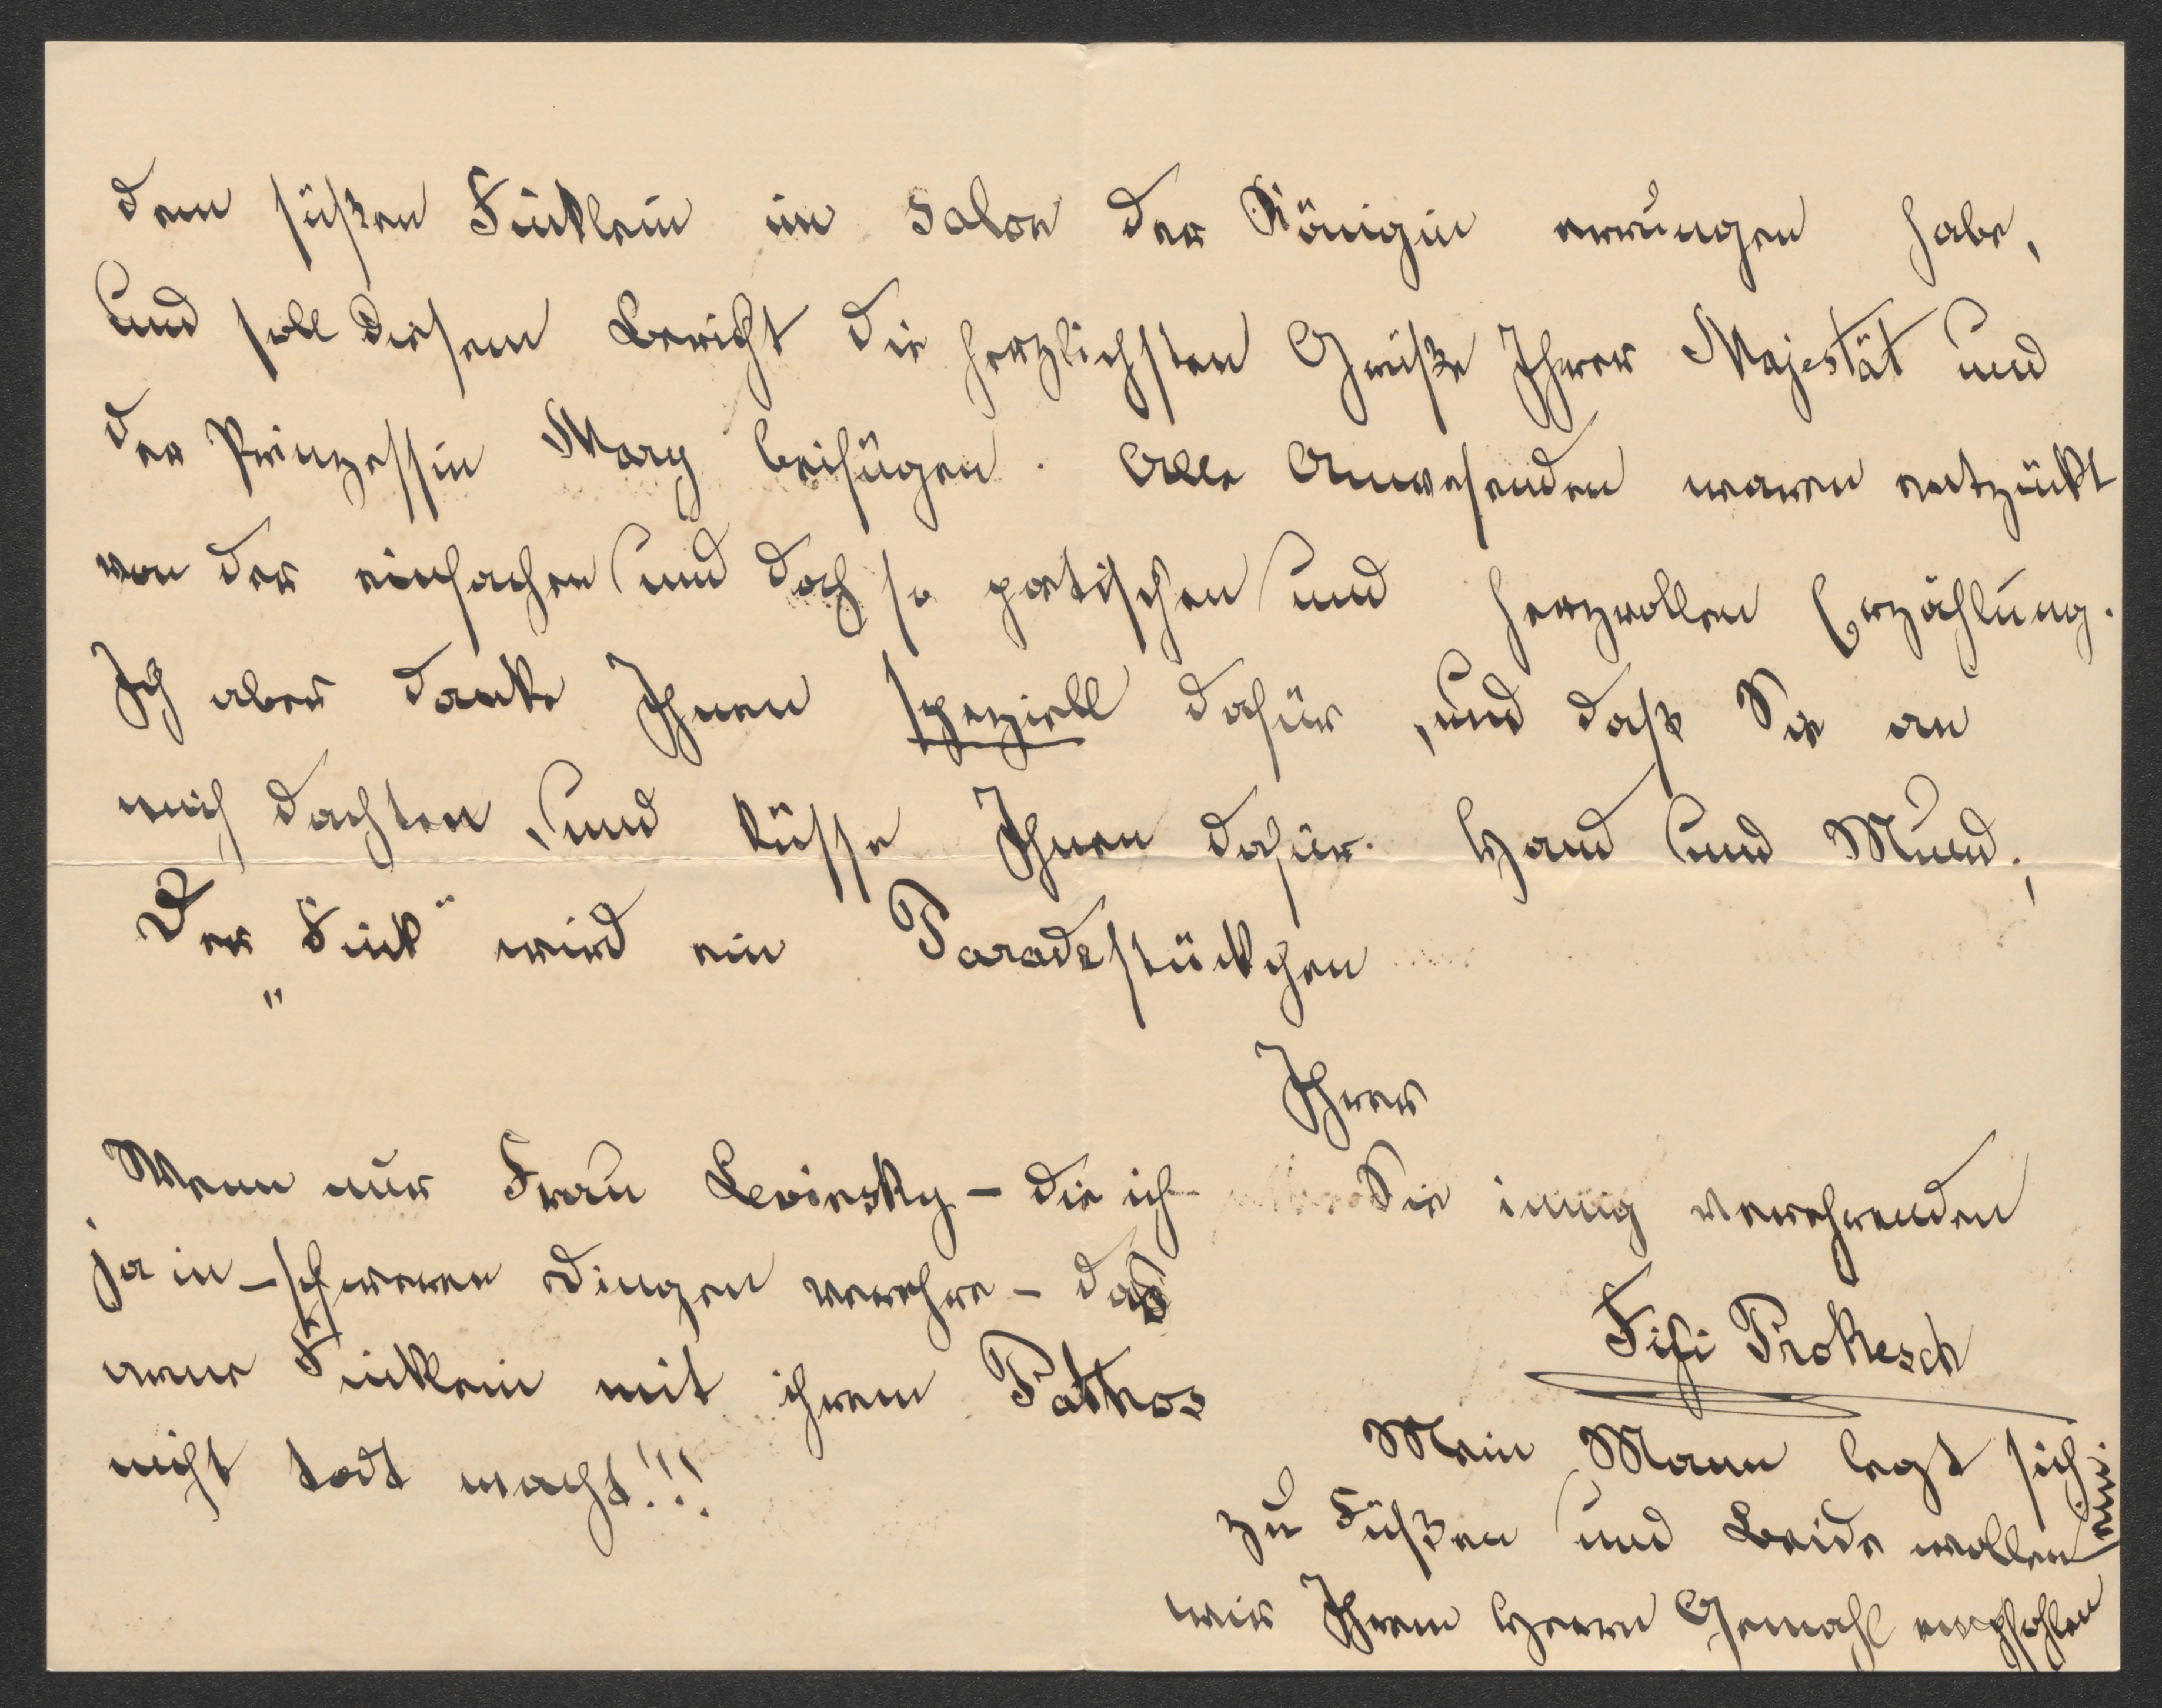 dem süßen Finklein im Salon der Königin errungen habe,
und soll diesem Bericht die herzlichsten Grüße Ihrer Majestät und
der Prinzessin Mary beifügen. Alle Anwesenden waren entzückt
von der einfachen und doch so poetischen und herzvollen Erzählung.
Ich aber danke Ihnen speziell dafür, und daß Sie an
mich dachten, und küsse Ihnen dafür Hand und Mund;
Der „Fink" wird ein Paradestückchen
Ihrer
Sie innig verehrenden
Fifi Prokesch
Wenn nur Frau Levinsky – die ich
ja in – schweren Dingen verehre – das
arme Finklein mit ihrem Pathos
nicht todt macht!!!
Mein Mann legt sich
zu Füßen und Beide wollen
wir Ihrem Herrn Gemahl empfohlen
sein.